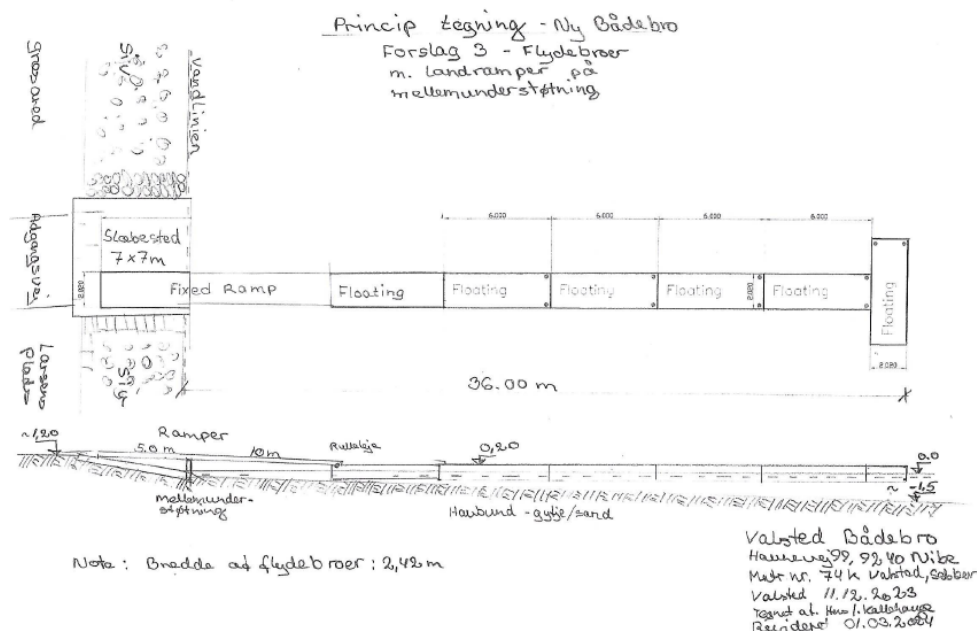 Princip tegning - Ny Bådebro
Forslag 3 - Flydebroer
m. landramper på
mellemunderstøtning
Siv
Vandlinien
Adgangsvej
Slæbested
7x7m
6.000
6.000
6.000
6.000
Fixed Ramp
Floating
Floating
Floating
Floating
Floating
Floating
Larsens
Plads
Siv
36.00 m
~1,20
Ramper
5.0 m
10m
Rulleleje
0,20
0.0
~ -1,5
Mellemunder-
støtning
Havbund - gytje/sand
Note: Bredde af flydebroer: 2,42 m
Valsted Bådebro
9240 Nibe
Matr nr. 74k Valsted, Sebber
Valsted 11.12.2023
Tegnet af.
01.03.2024